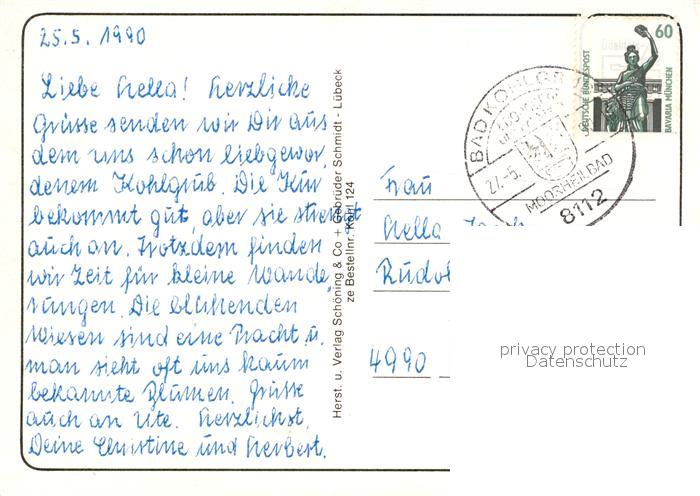 25.5. 1990
Liebe Hella! Herzliche
Grüsse senden wir Dir aus
dem uns schon liebgewor
denem Kohlgrub. Die Kur
bekommt gut, aber sie strengt
auch an. Trotzdem finden
wir Zeit für kleine Wande
rungen. Die blühenden
Wiesen sind eine Pracht u.
man sieht oft uns kaum
bekannte Blumen. Grüsse
auch an Ute. Herzlichst,
Deine Christine und Herbert.
Herst. u. Verlag Schöning & Co + Gebrüder Schmidt - Lübeck
ze Bestellnr. Koh 124
60
DEUTSCHE BUNDESPOST
BAVARIA MÜNCHEN
BAD KOHLGR
27.-5.
MOORHEILBAD
8112
Frau
Hella
Rudol
4990
privacy protection
Datenschutz